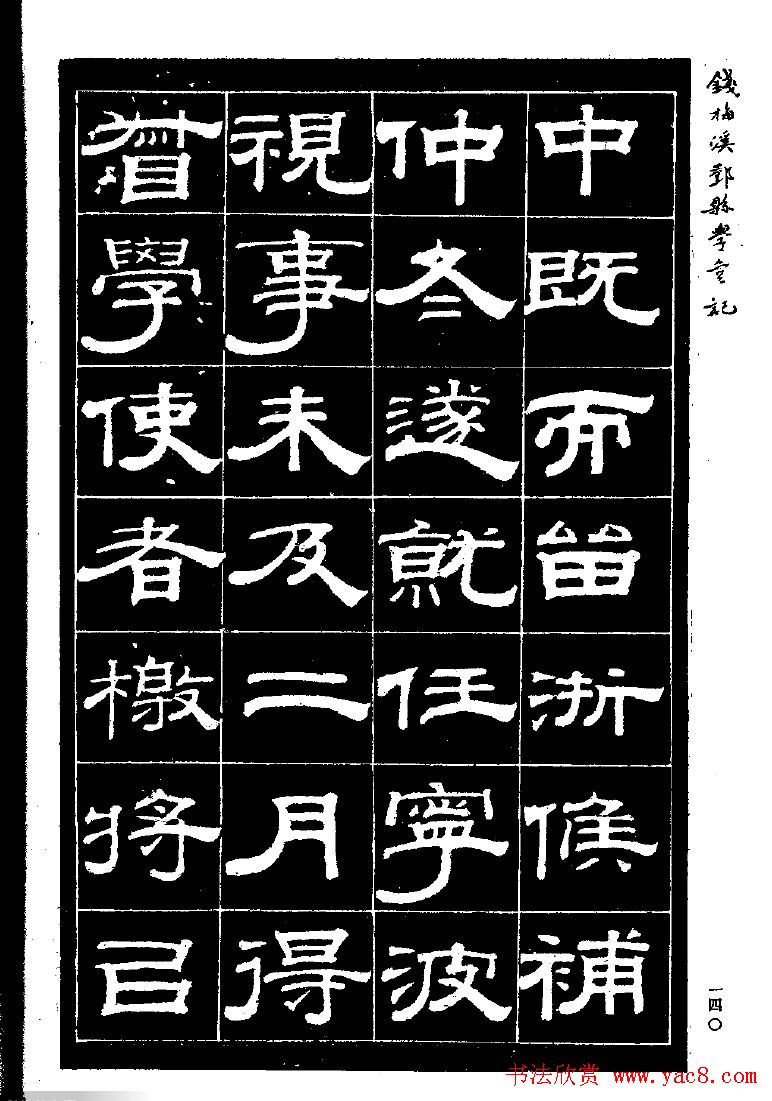 錢梅溪鄞縣學宮記
中既而留浙候補
仲冬遂就任寧波
視事未及二月得
督學使者檄將㠯
一四〇
书法欣赏 www.yac8.com